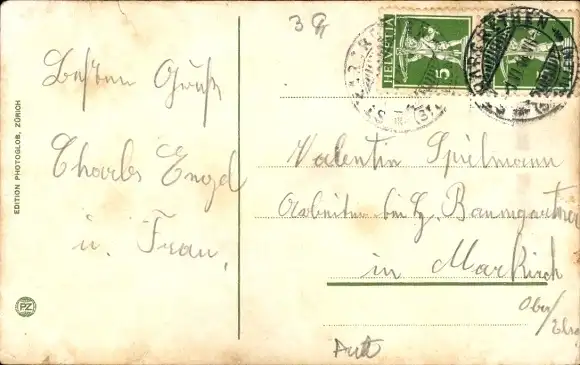 3 G
HELVETIA 5
5
Besten Gruß
Charles Engel
u. Frau,
EDITION PHOTOGLOB, ZÜRICH
PZ
Valentin Spielmann
Arbeiter bei Hg. Baumgartner
in Markirch
Ober/
Els